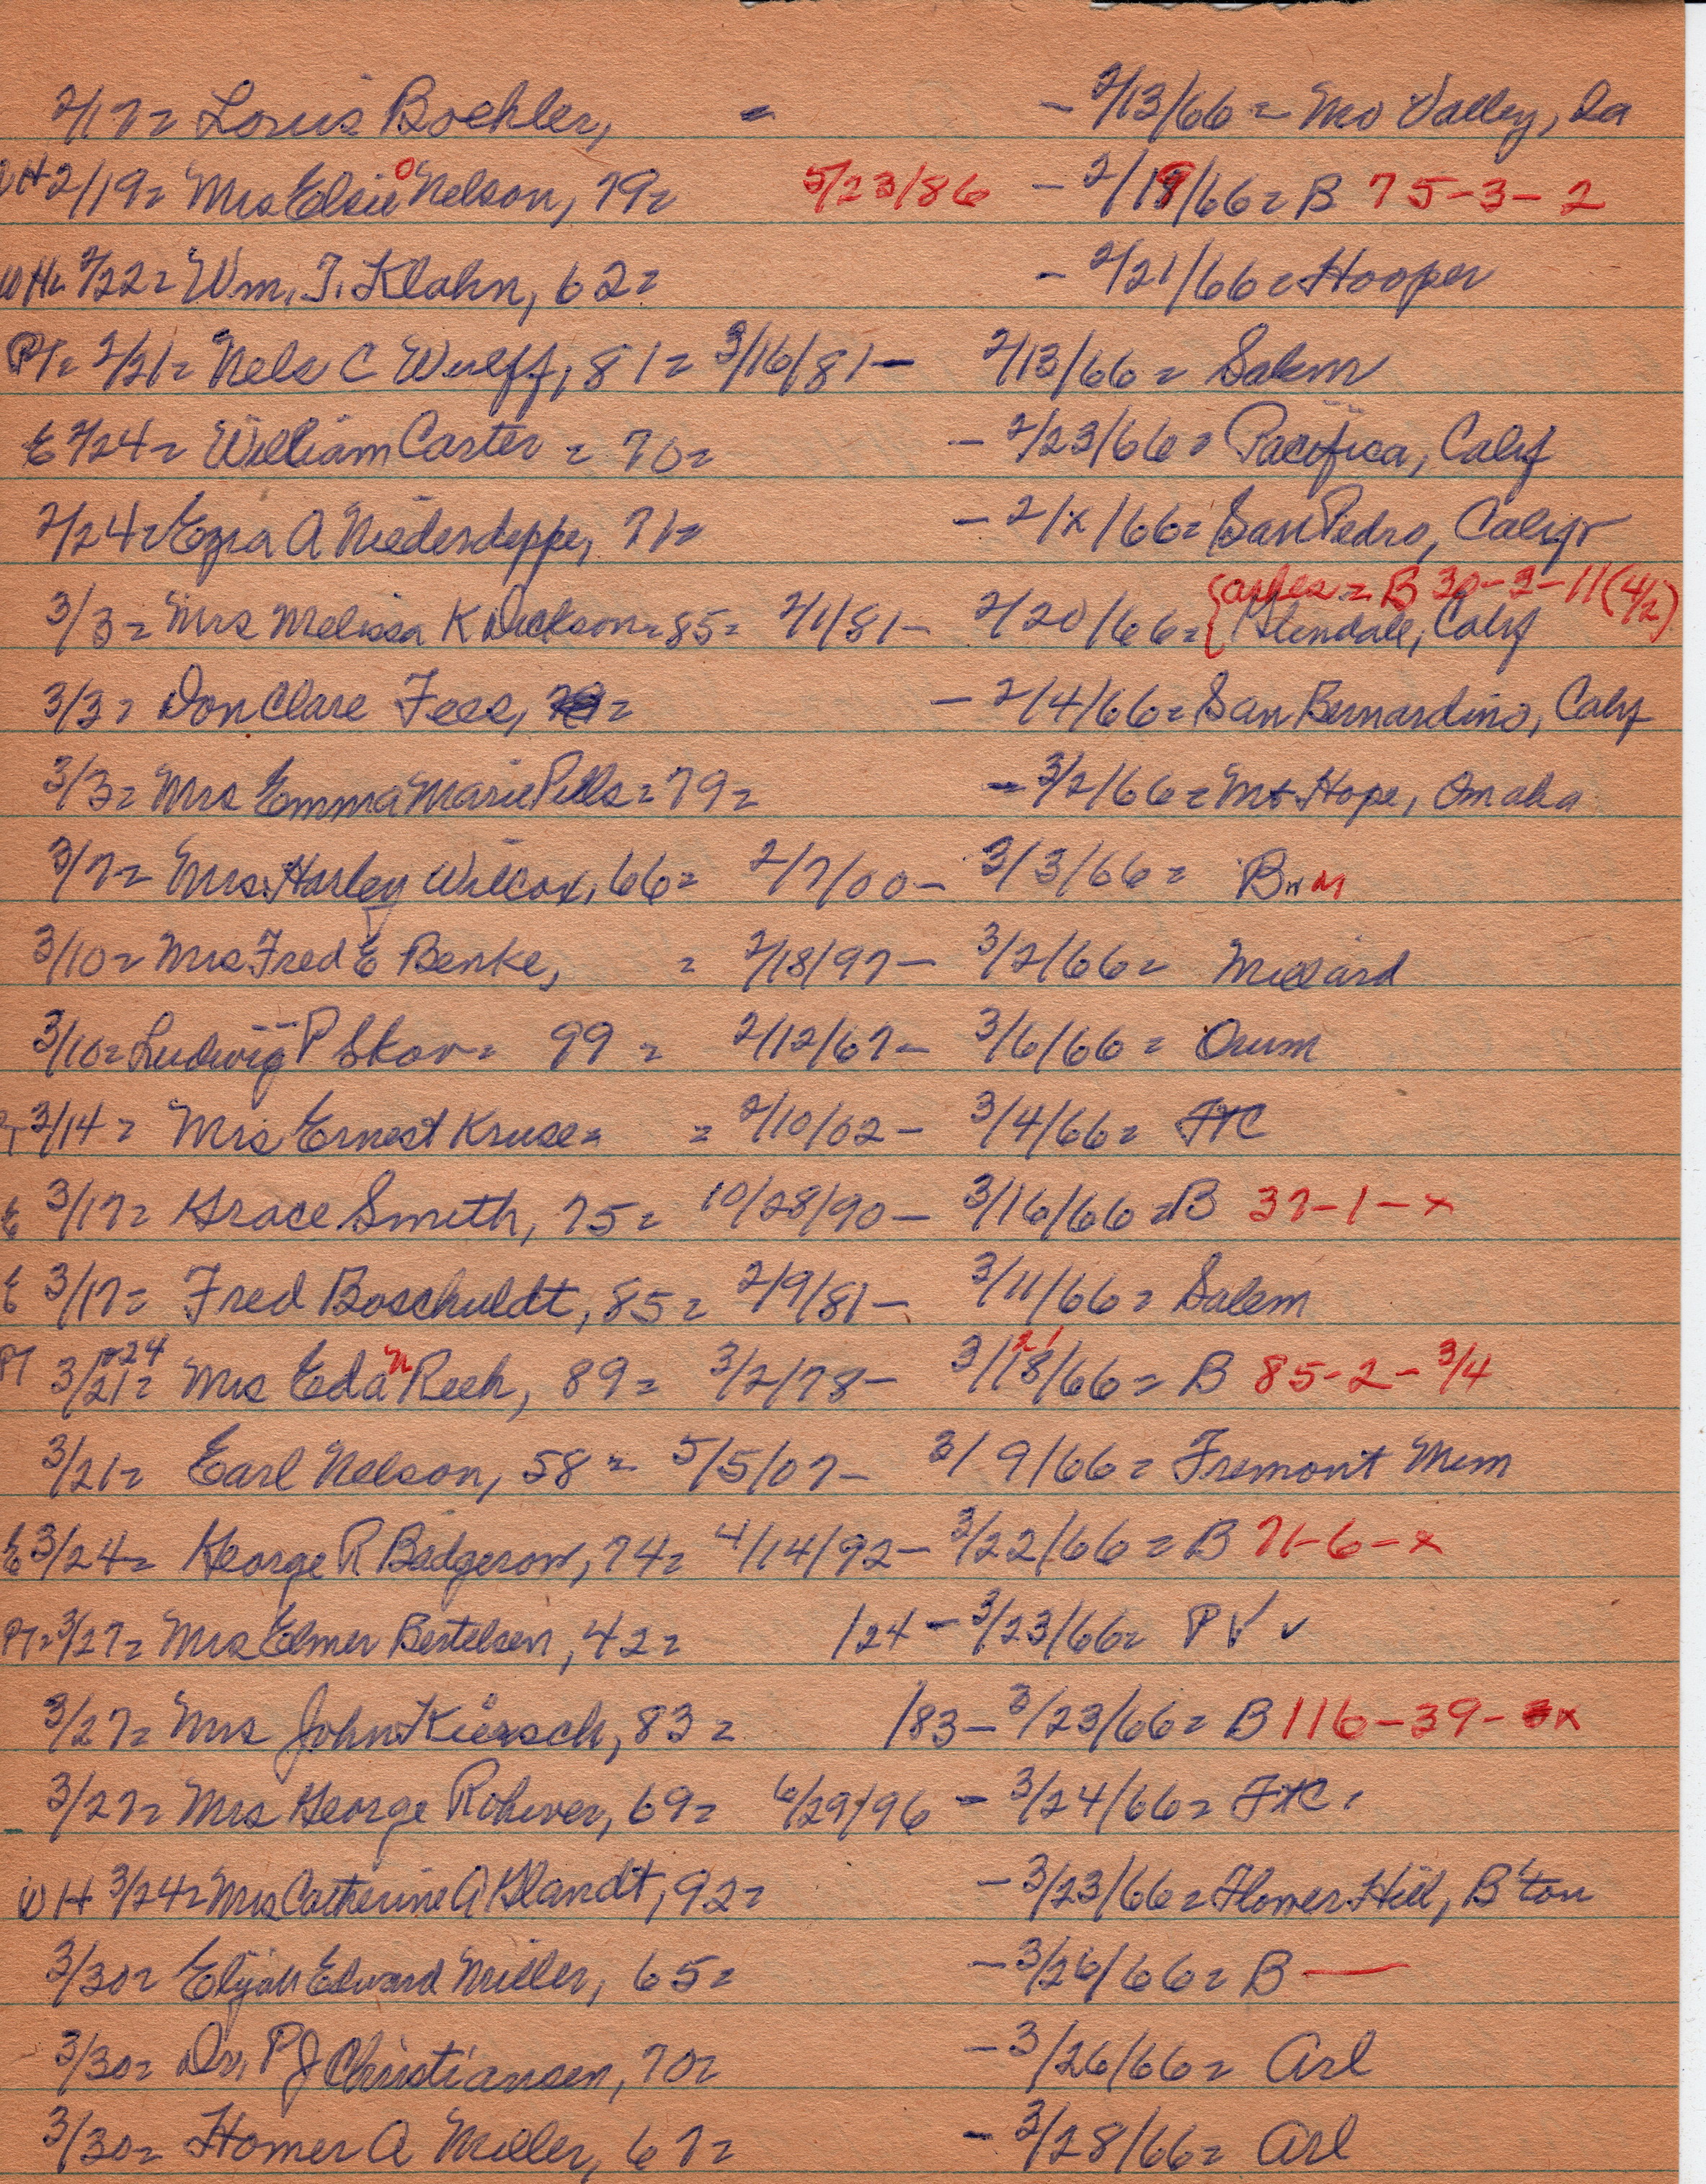 2/17= Louis Boehler, = - 2/13/66 = Mo Valley, Ia
WH 2/19= Mrs Elsie O Nelson, 79= 5/23/86 - 2/19/66= B 75-3-2
WH= 2/22= Wm. T. Klahn, 62= - 2/21/66= Hooper
PT= 2/21= Nels C Wulff, 81= 3/16/81- 2/13/66= Salem
E 2/24= William Carter = 70= - 2/23/66= Pacifica, Calif
2/24= Ezra A Niederdeppe, 71= - 2/x/66= San Pedro, Calif
{ashes = B 30-3-11 (4/2)
3/3= Mrs Melissa K Dickson=85= 2/1/81- 2/20/66= Glendale, Calif
3/3= Don Clare Fees, = - 2/4/66= San Bernardino, Calif
3/3= Mrs Emma Marie Pells=79= - 3/2/66= Mt Hope, Omaha
3/7= Mrs. Harley Wilcox, 66= 2/7/00- 3/3/66= B
3/10= Mrs Fred E Benke, = 2/18/97- 3/2/66= Millard
3/10= Ludwig P Skov= 99 = 2/12/67- 3/6/66= Orum
PT 3/14= Mrs Ernest Kruse= = 2/10/02- 3/4/66= FtC
E 3/17= Grace Smith, 75= 10/28/90- 3/16/66=B 37-1-x
E 3/17= Fred Boschuldt, 85= 2/9/81- 3/11/66= Salem
PT 3/21= 24 Mrs Edna Reeh, 89= 3/2/78- 3/18/66= 21 B 85-2-3/4
3/21= Earl Nelson, 58= 5/5/07- 3/9/66= Fremont Mem
E 3/24= George R Badgerow, 74= 4/14/92- 3/22/66= B 71-6-x
PT= 3/27= Mrs Elmer Bertelsen, 42= /24- 3/23/66= PV ✓
3/27= Mrs John Kiersch, 83= /83- 3/23/66= B 116-39-x
3/27= Mrs George Rohwer, 69= 6/29/96 - 3/24/66= FtC.
WH 3/24= Mrs Catherine A Klandt, 92= - 3/23/66= Flower Hill, B'ton
3/30= Elijah Edward Miller, 65= - 3/26/66= B —
3/30= Dr. P J Christiansen, 70= - 3/26/66= Arl
3/30= Homer A Miller, 67= - 3/28/66= Arl